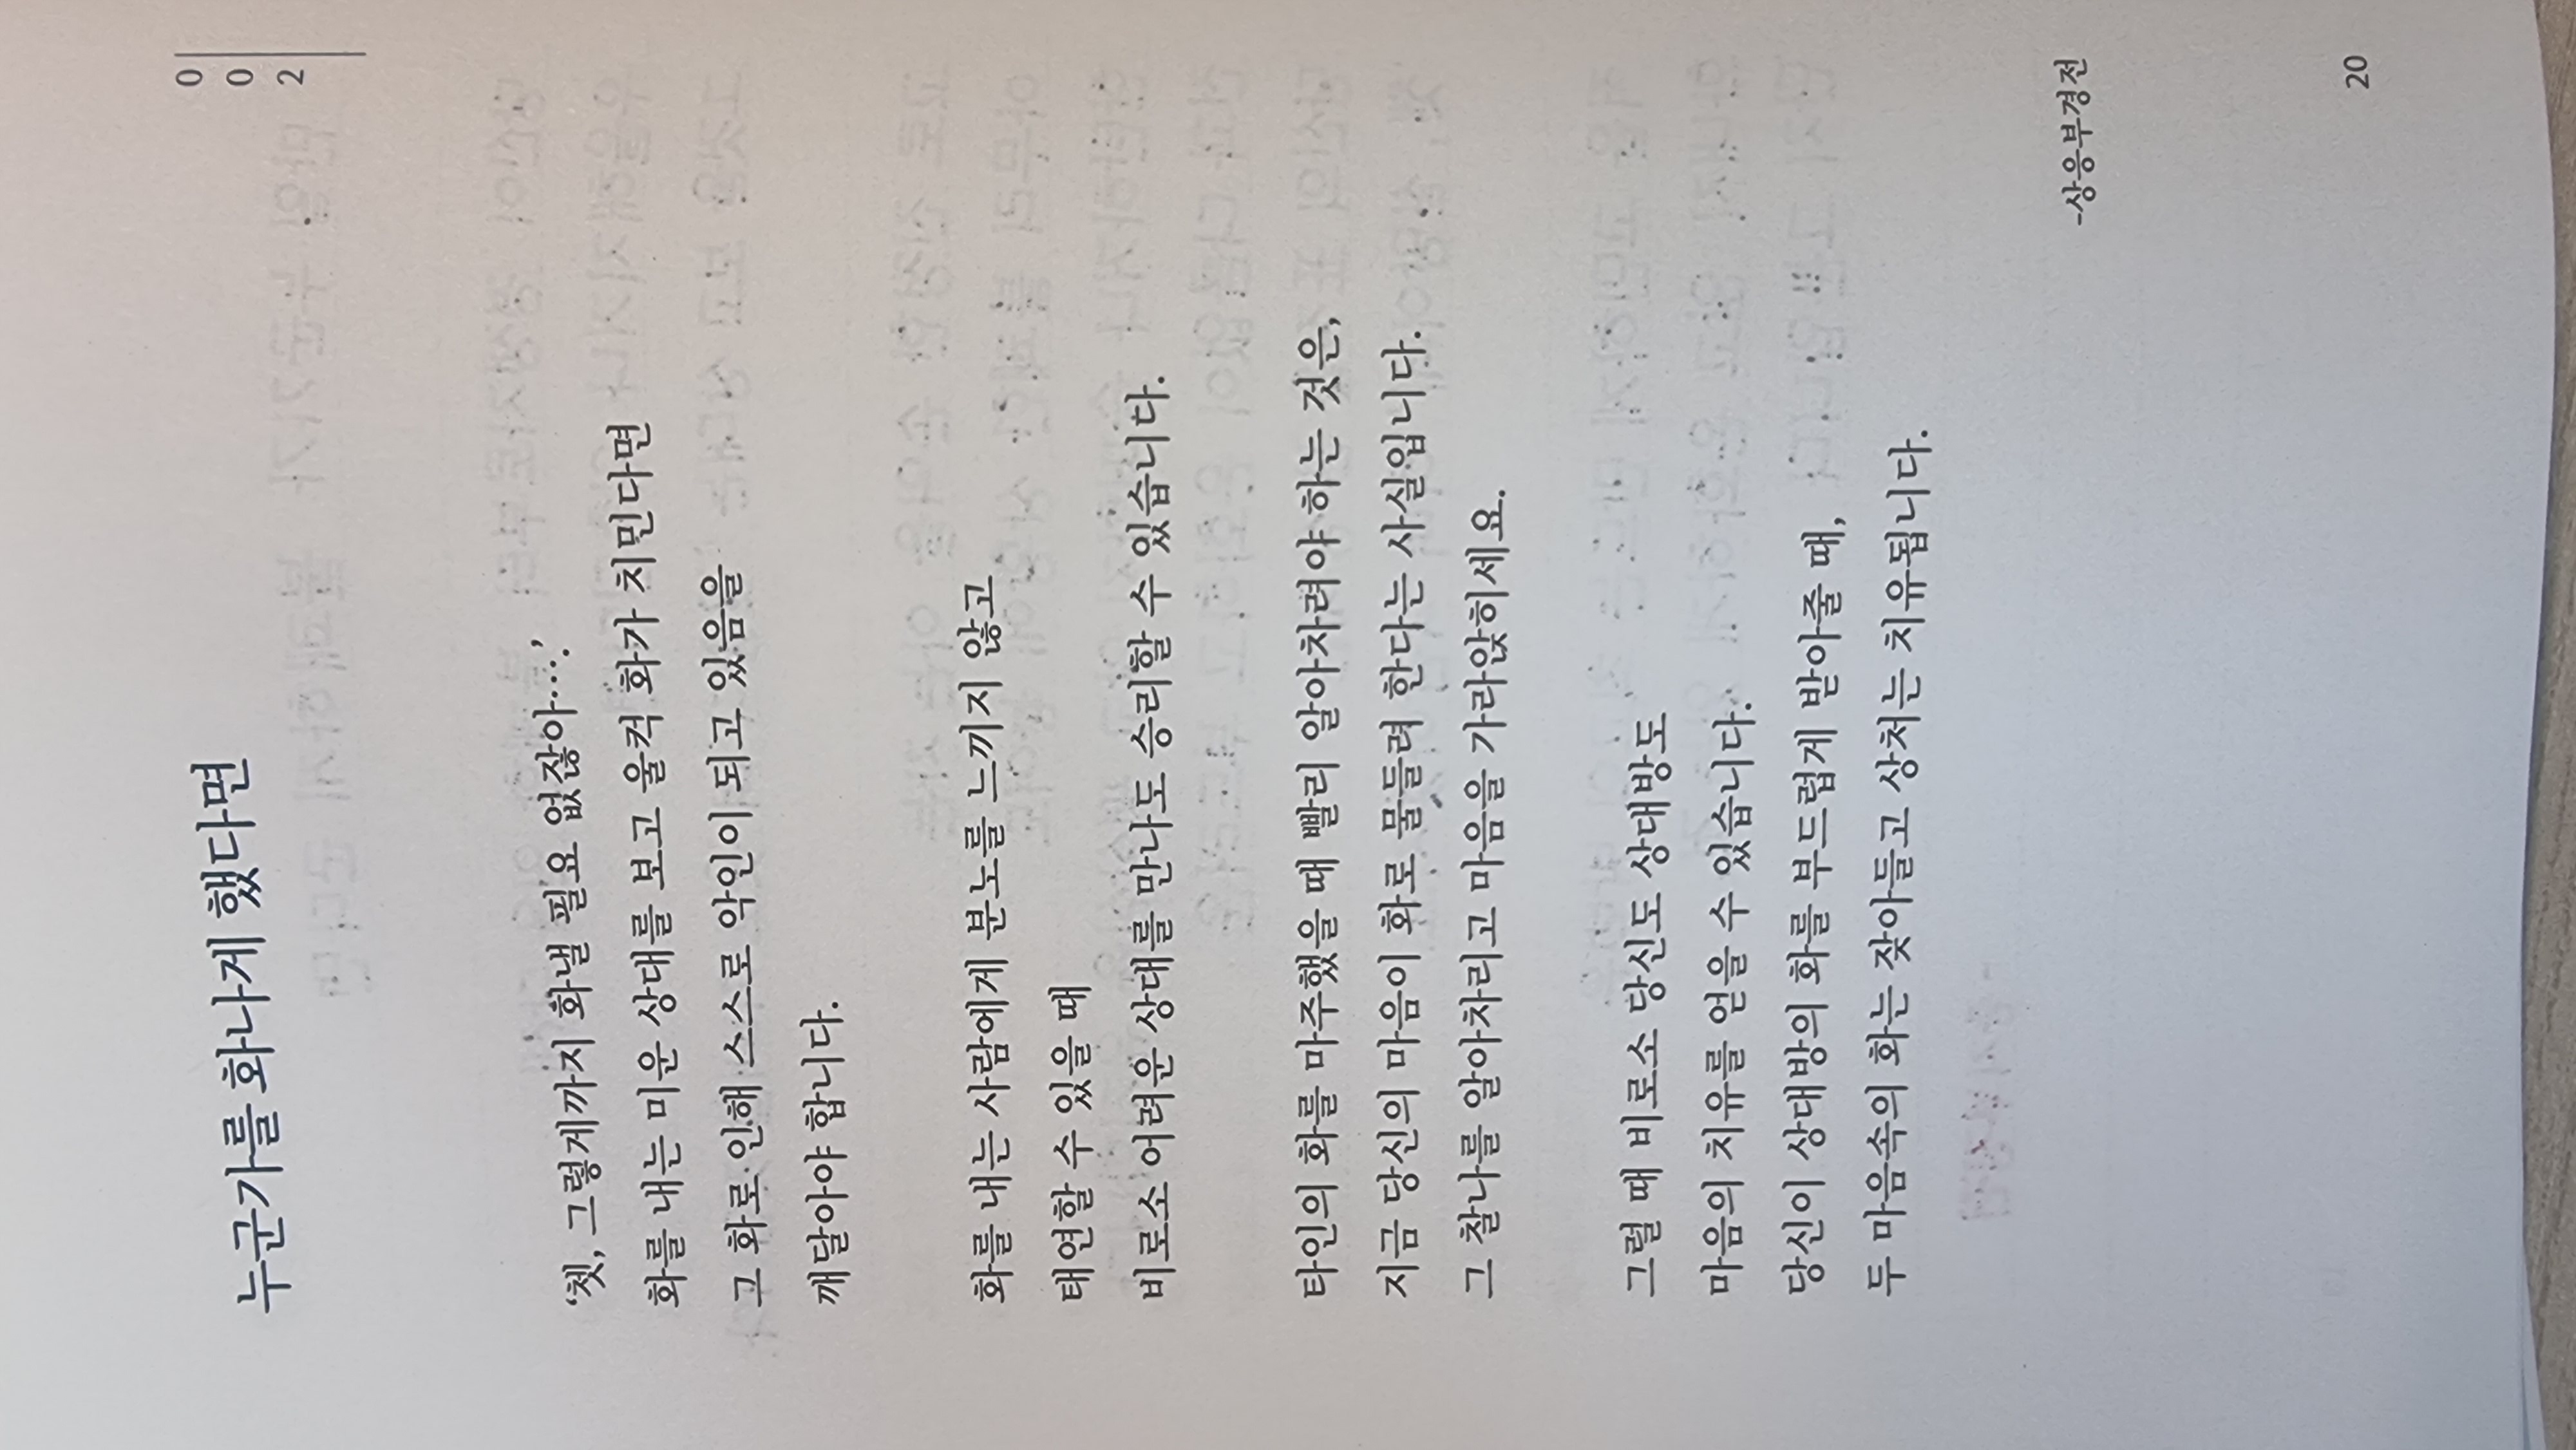 002
누군가를 화나게 했다면
‘쳇, 그렇게까지 화낼 필요 없잖아….’
화를 내는 미운 상대를 보고 울컥 화가 치민다면
그 화로 인해 스스로 악인이 되고 있음을
깨달아야 합니다.
화를 내는 사람에게 분노를 느끼지 않고
태연할 수 있을 때
비로소 어려운 상대를 만나도 승리할 수 있습니다.
타인의 화를 마주했을 때 빨리 알아차려야 하는 것은,
지금 당신의 마음이 화로 물들려 한다는 사실입니다.
그 찰나를 알아차리고 마음을 가라앉히세요.
그럴 때 비로소 당신도 상대방도
마음의 치유를 얻을 수 있습니다.
당신이 상대방의 화를 부드럽게 받아줄 때,
두 마음속의 화는 잦아들고 상처는 치유됩니다.
-상응부경전
20